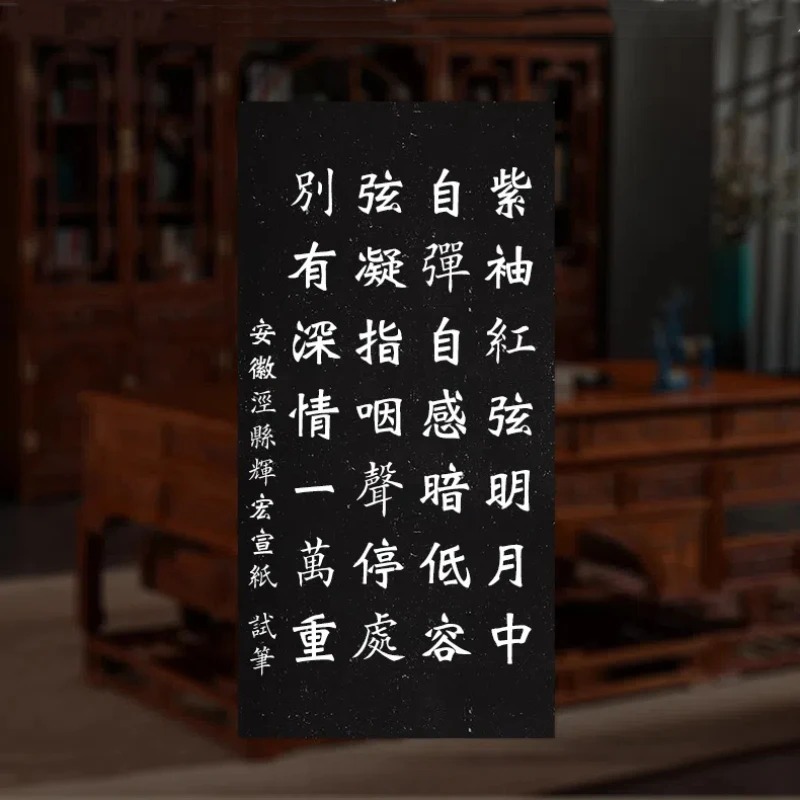 紫袖紅弦明月中
自彈自感暗低容
弦凝指咽聲停處
別有深情一萬重
安徽涇縣輝宏宣紙 試筆